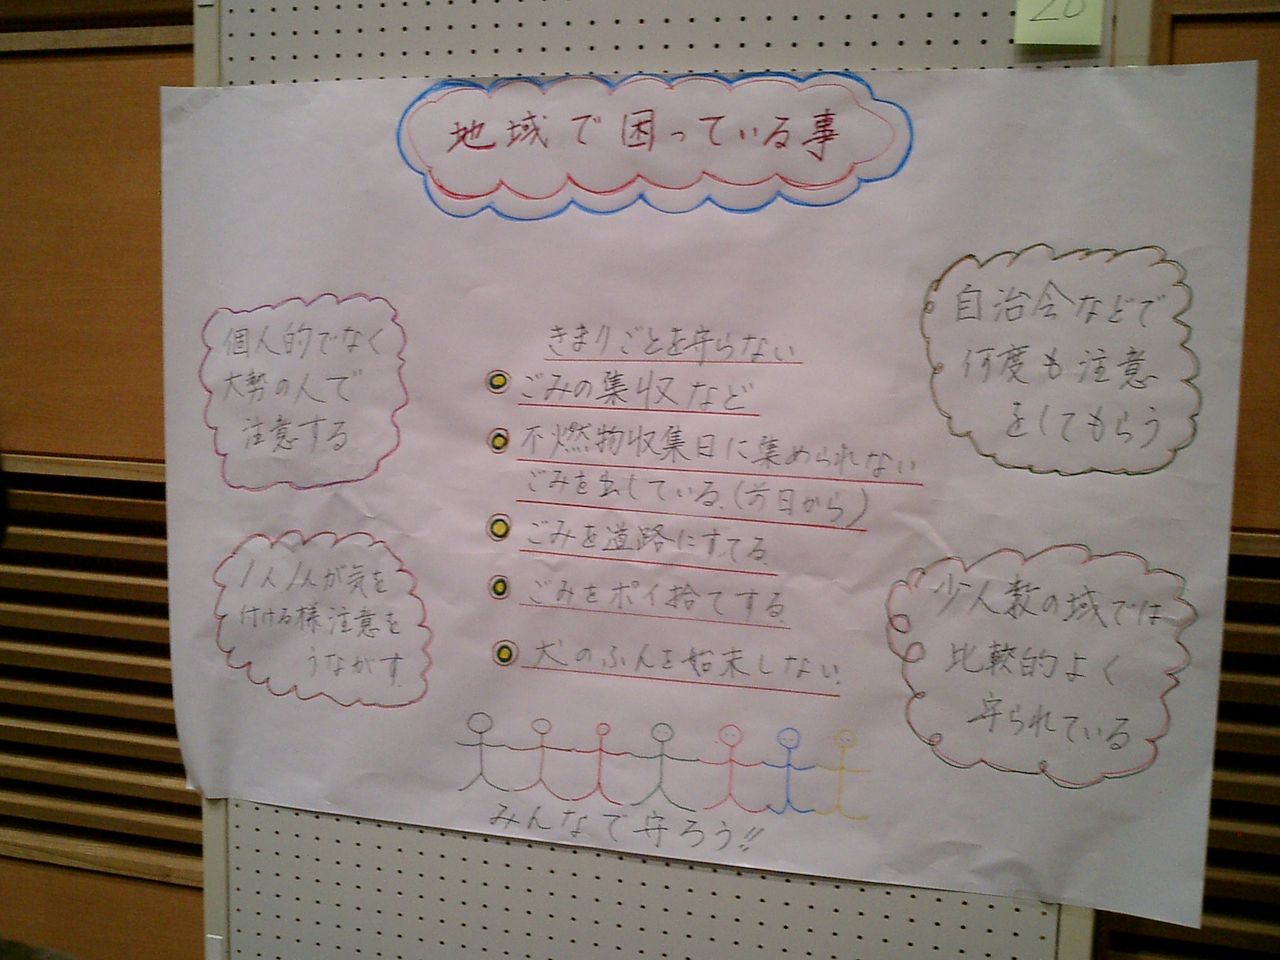 20
地域で困っている事
個人的でなく
大勢の人で
注意する
1人1人が気を
付ける様注意を
うながす.
きまりごとを守らない
ごみの集収など
不燃物収集日に集められない
ごみを出している.(前日から)
ごみを道路にすてる.
ごみをポイ捨てする.
犬のふんを始末しない.
自治会などで
何度も注意
をしてもらう
少人数の域では
比較的よく
守られている
みんなで守ろう!!